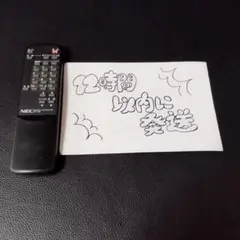 12時間
以内に
発送
NEC